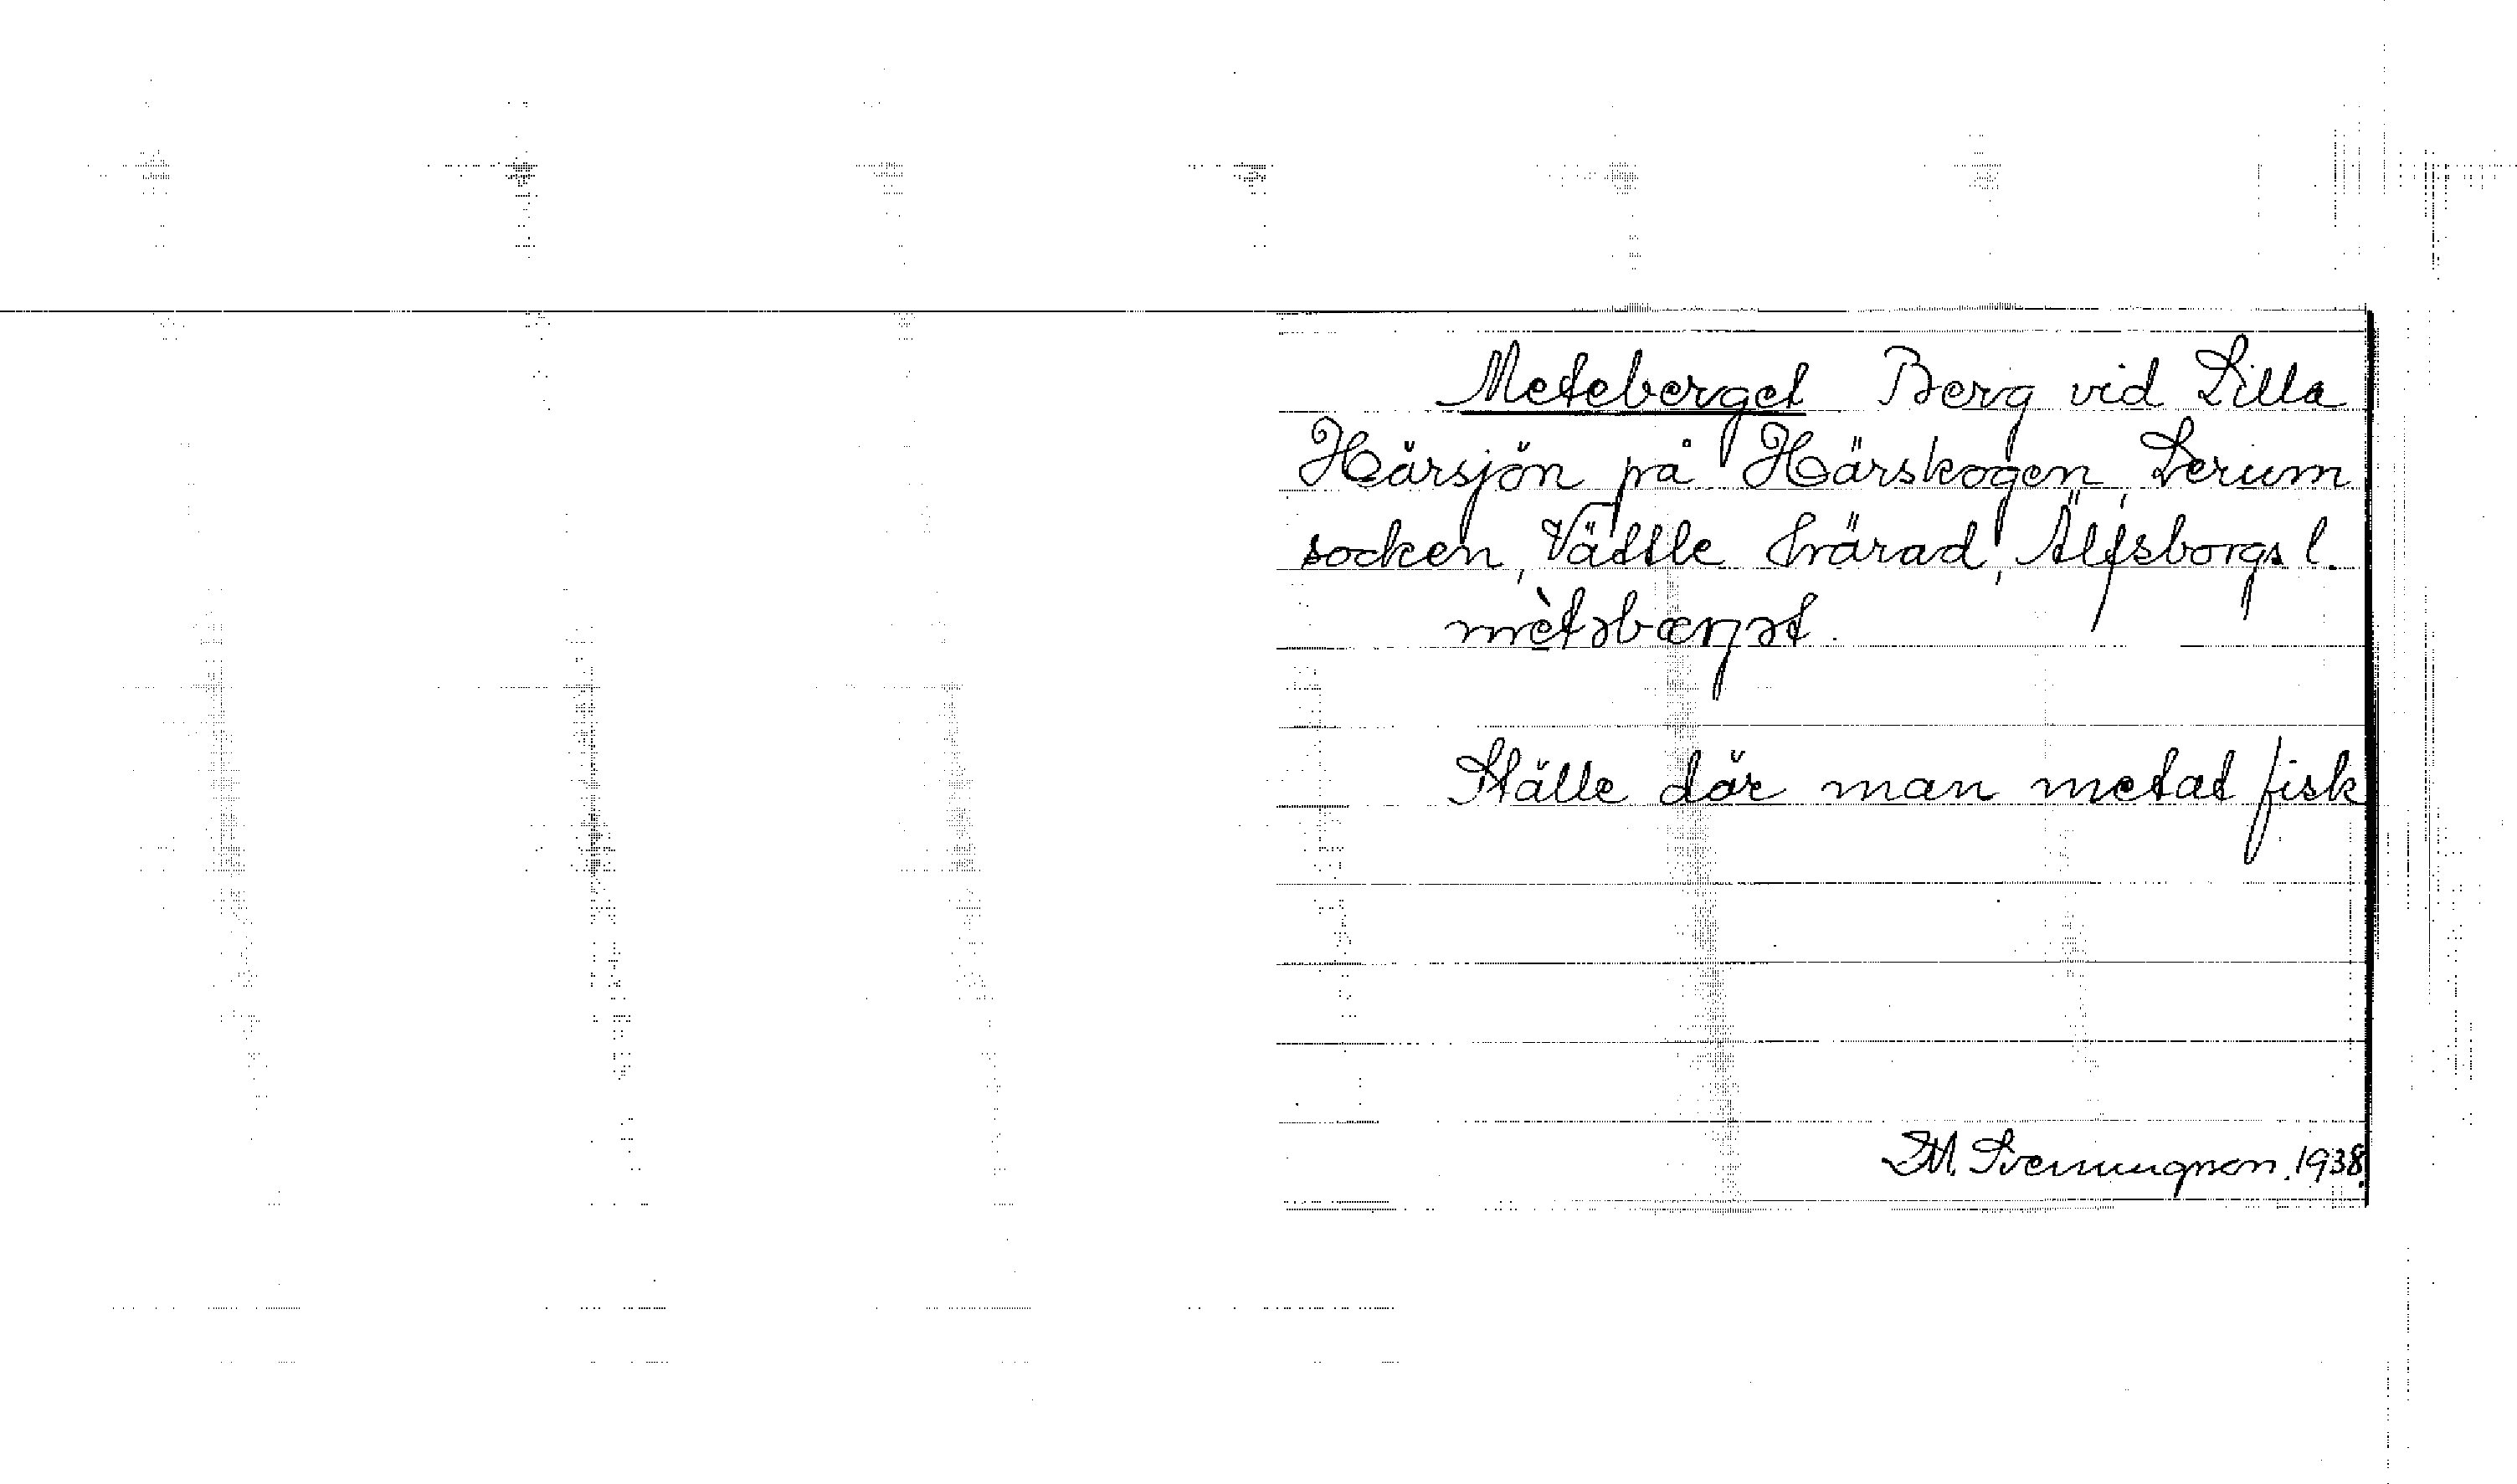 Meteberget Berg vid Lilla
Härsjön på Härskogen, Lerum
socken, Vättle härad, Älfsborgs l.
mètəbærgət.
Ställe där man metat fisk
1938.